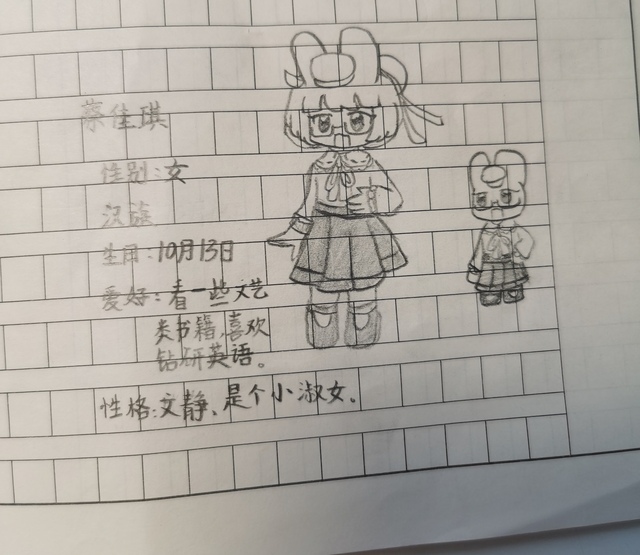 蔡佳琪
性别:女
汉族
生日:10月13日
爱好:看一些文艺
类书籍,喜欢
钻研英语。
性格:文静、是个小淑女。